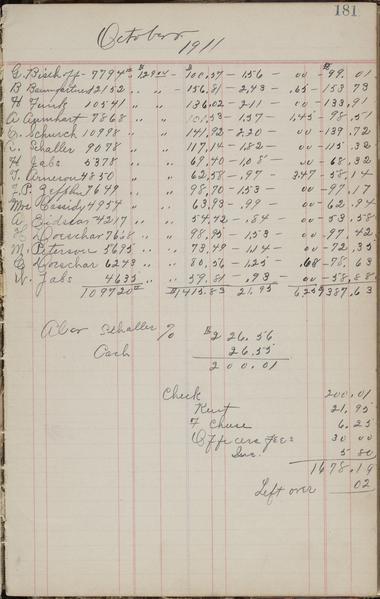 181
October
1911
G. Bischoff - 7794 # $12904 - $100.57 - 1.56 - 00 - $99.01
B Baumgartner 12152 " " - 156.81 - 2.43 - .65 - 153 73
H Funk 10541 " " - 136.02 - 2.11 - 00 - 133.91
A Amhart 7868 " " - 101.53 - 1.57 - 1.45 - 98.51
C. Schurch 10998 " " 141.92 - 2.20 - 00 - 139.72
Schaller 9078 " " 117.14 - 1.82 - 00 - 115.32
H Jabs 5378 " " 69.40 - 1.08 - 00 - 68.32
T. Arneson 4850 " " 62.58 - .97 - 3.47 - 58.14
7649 " " 98.70 - 1.53 - 00 - 97.17
Mrs Cassidy 4954 " " 63.93 - .99 - 00 - 62.94
A 4217 " " 54.42 - .84 - 00 - 53.58
7668 " " 98.95 - 1.53 - 00 - 97.42
M. Peterson 5695 " " 73.49 - 1.14 - 00 - 72.35
6243 " " 80.56 - 1.25 - .68 - 78.63
W. Jabs 4635 " " 59.81 - .93 - 00 - 58.88
109720 # $1415.83 21.95 6.25 $1387.63
Schaller % $2 26.56
Cash 26.55
200.01
Check 200.01
Rent 21.95
Chese 6.25
Officers fees 30 00
Inc. 5 80
1678.19
Left over 02